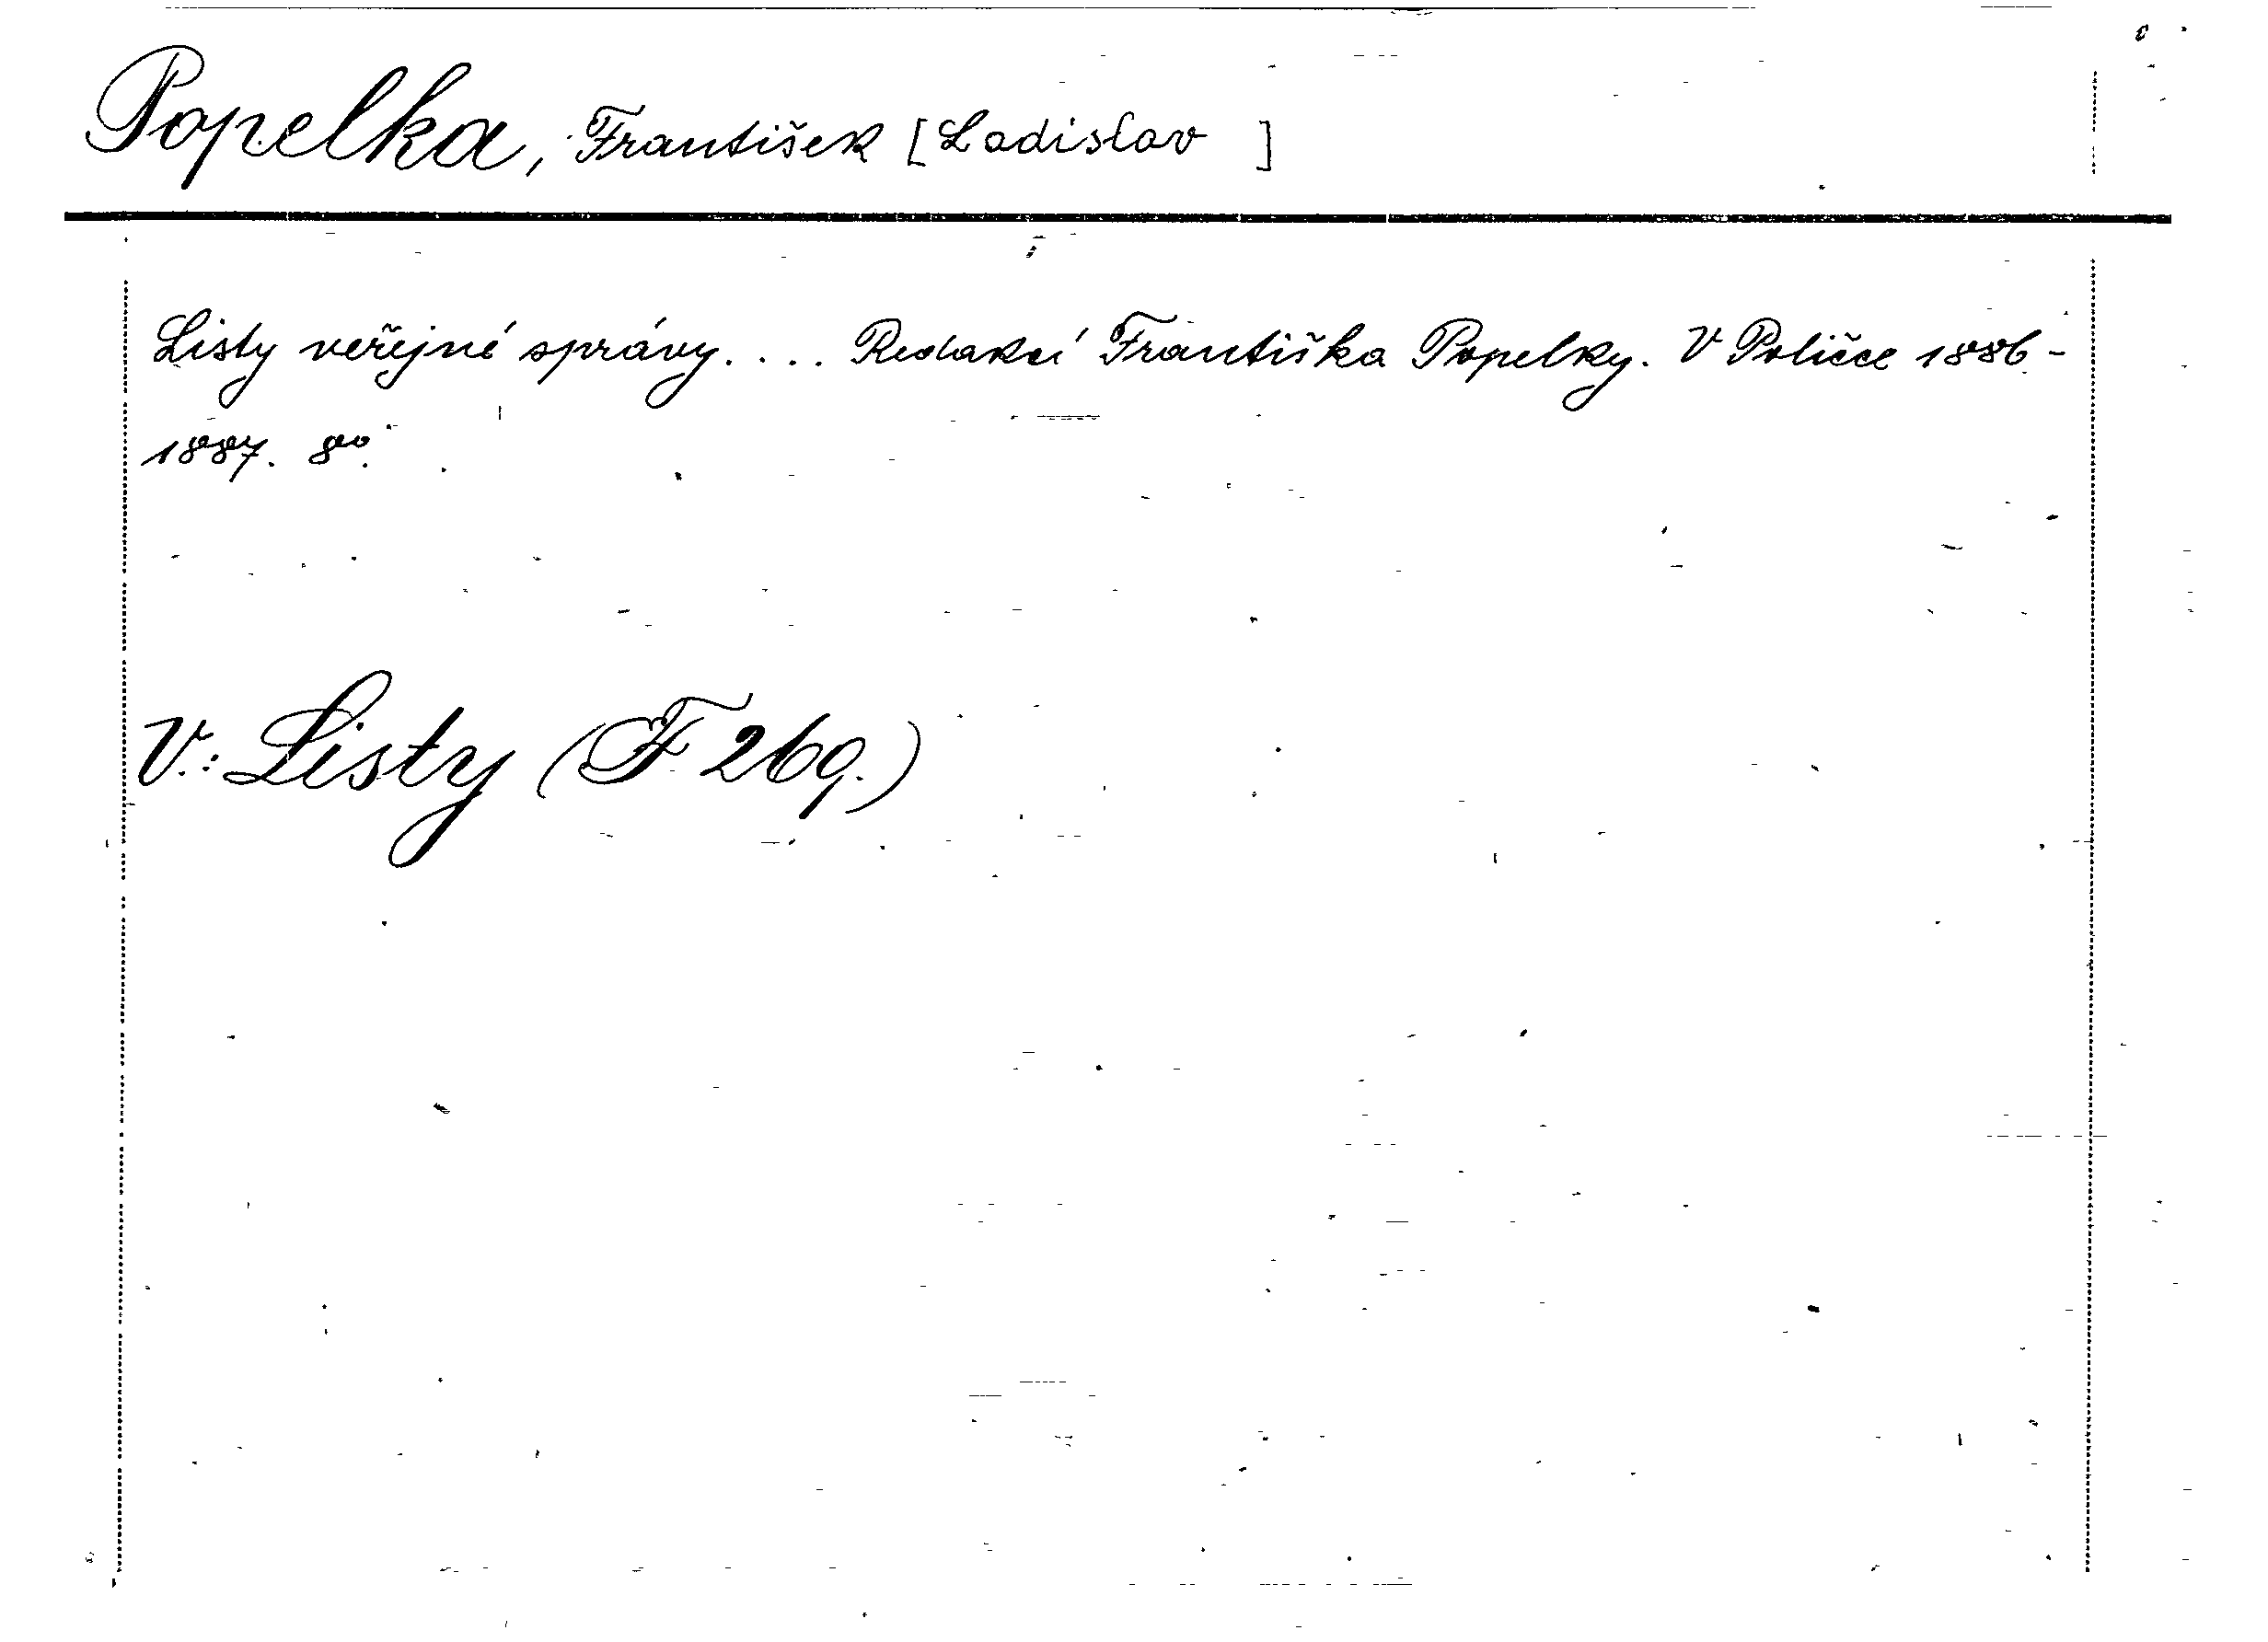 Popelka, František [Ladislav ]
Listy veřejné správy. ... Redakcí Františka Popelky. V Poličce 1886-
1887. 8º.
V.: Listy (F 269.)